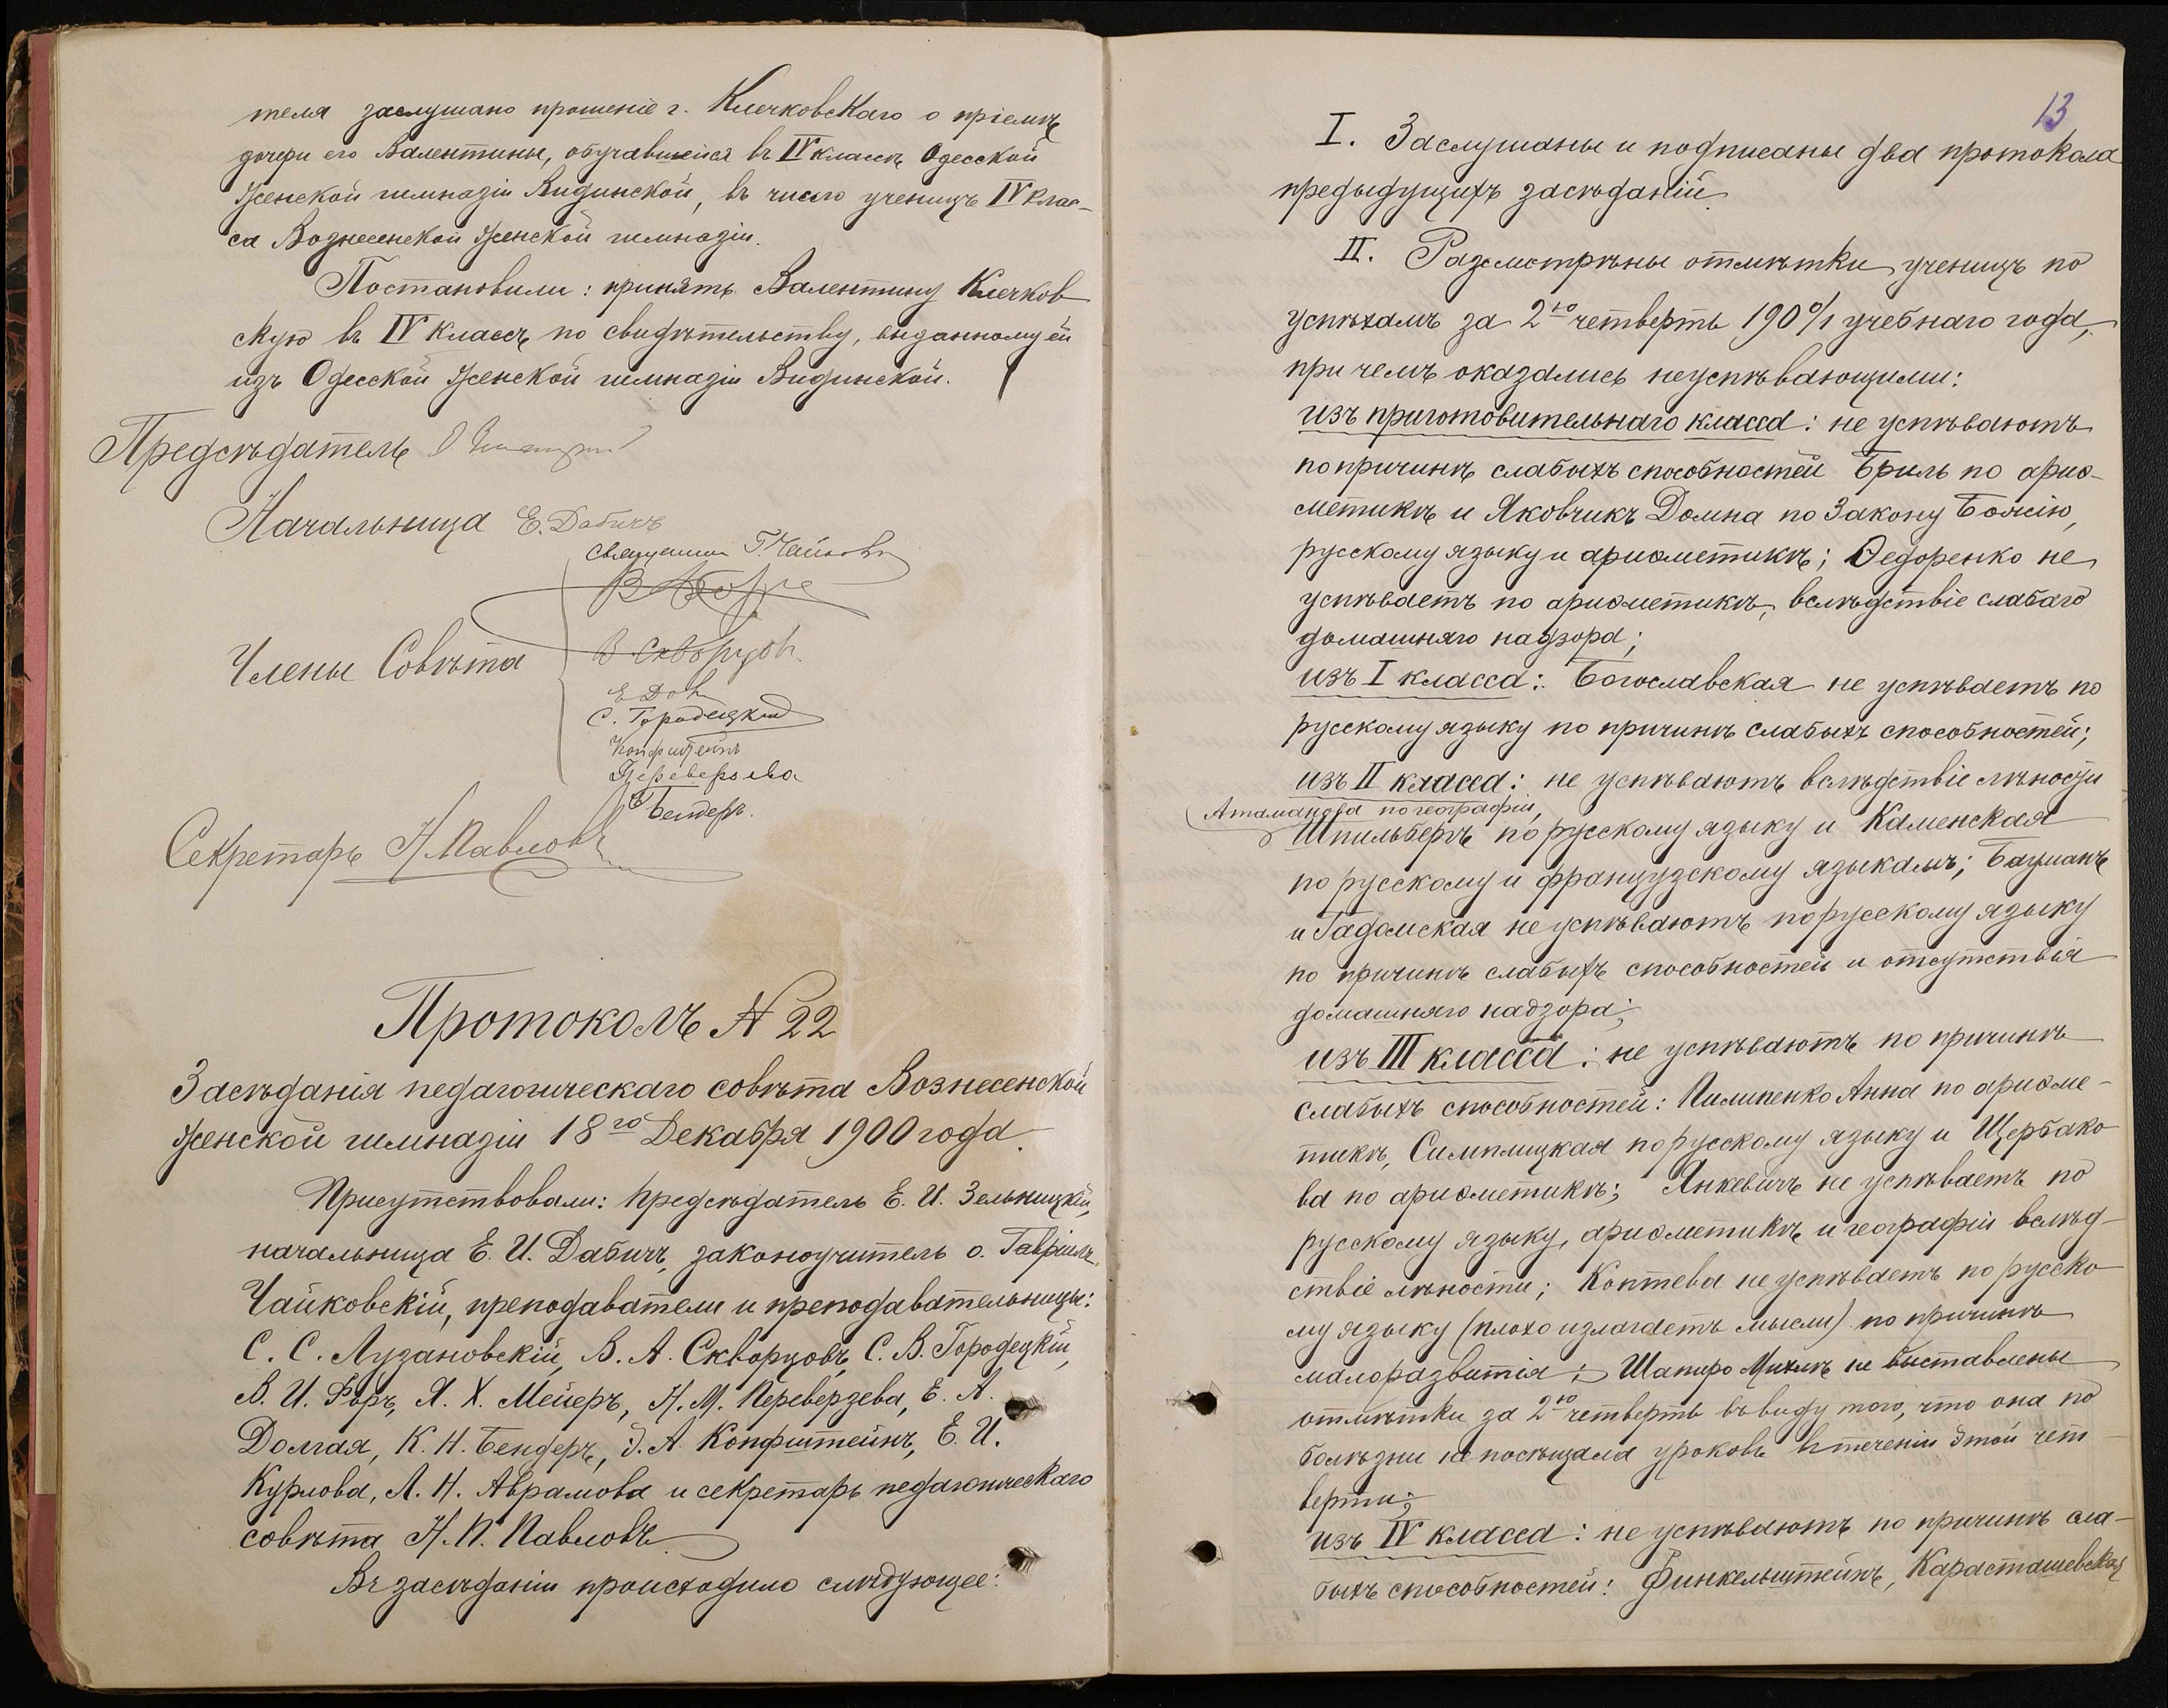 теля заслушано прошеніе г. Клечковскаго о пріемѣ
дочери его Валентины, обучавшейся въ IV классѣ Одесской
женской гимназіи Видинской, въ число ученицъ IV клас-
са Вознесенской женской гимназіи.
Постановили: принять Валентину Клечков
скую въ IV классъ по свидѣтельству, выданному ей
изъ Одесской женской гимназіи Видинской.
Предсѣдатель
Начальница Е. Дабичъ
Священникъ Г. Чайковскій
Члены Совѣта
В. Скворцовъ
С. Городецкій
Конфиштейнъ
Переверзева
Бендеръ.
Секретарь Н. Павловъ
Протоколъ № 22
Засѣданія педагогическаго совѣта Вознесенской
женской гимназіи 18го Декабря 1900 года.
Присутствовали: предсѣдатель Е. И. Зельницкій,
начальница Е. И. Дабичъ, законоучитель о. Гавріилъ
Чайковскій, преподаватели и преподавательницы:
С. С. Лузановскій, В. А. Скворцовъ, С. В. Городецкій,
В. И. Форъ, Я. Х. Мейеръ, Н. М. Переверзева, Е. А.
Долгая, К. Н. Бендеръ, Э. А. Конфиштейнъ, Е. И.
Курлова, Л. Н. Аврамова и секретарь педагогическаго
совѣта Н. П. Павловъ
Въ засѣданіи происходило слѣдующее:
13
I. Заслушаны и подписаны два протокола
предыдущихъ засѣданій.
II. Разсмотрѣны отмѣтки ученицъ по
успѣхамъ за 2ю четверть 190 0/1 учебнаго года,
при чемъ оказались неуспѣвающими:
изъ приготовительнаго класса: не успѣваютъ
по причинѣ слабыхъ способностей Бриль по ариѳ-
метикѣ и Яковчикъ Домна по Закону Божію,
русскому языку и ариѳметикѣ; Ѳедоренко не
успѣваетъ по ариѳметикѣ, вслѣдствіе слабаго
домашняго надзора;
изъ I класса: Богославская не успѣваетъ по
русскому языку по причинѣ слабыхъ способностей;
изъ II класса: не успѣваютъ вслѣдствіе лѣности
Атаманова по географіи,
Шпильбергъ по русскому языку и Каменская
по русскому и французскому языкамъ; Бауманъ
и Гадомская не успѣваютъ по русскому языку
по причинѣ слабыхъ способностей и отсутствія
домашняго надзора;
изъ III класса: не успѣваютъ по причинѣ
слабыхъ способностей: Пилипенко Анна по ариѳме-
тикѣ, Симплицкая по русскому языку и Щербако
ва по ариѳметикѣ; Янкевичъ не успѣваетъ по
русскому языку, ариѳметикѣ и географіи вслѣд-
ствіе лѣности; Коптева не успѣваетъ по русско
му языку (плохо излагаетъ мысли) по причинѣ
малоразвитія; Шапиро Михлѣ не выставлены
отмѣтки за 2ю четверть въ виду того, что она по
болѣзни не посѣщала уроковъ въ теченіи этой чет-
верти;
изъ IV класса: не успѣваютъ по причинѣ сла-
быхъ способностей: Финкельштейнъ, Карасташевская